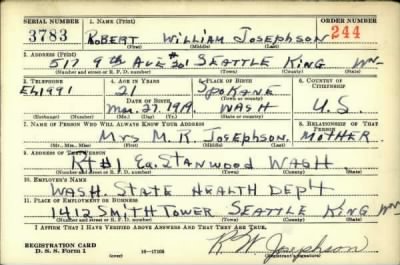 SERIAL NUMBER 1. NAME (Print) ORDER NUMBER
3783 ROBERT WILLIAM JOSEPHSON 244
(First) (Middle) (Last)
2. ADDRESS (Print)
517 9th AVE #201 SEATTLE KING WN.
(Number and street or R. F. D. number) (Town) (County) (State)
3. TELEPHONE 4. AGE IN YEARS 5. PLACE OF BIRTH 6. COUNTRY OF CITIZENSHIP
EL1991 21 SPOKANE
DATE OF BIRTH (Town or county)
Mar. 27, 1919. WASH U.S.
(Exchange) (Number) (Mo.) (Day) (Yr.) (State or country)
7. NAME OF PERSON WHO WILL ALWAYS KNOW YOUR ADDRESS 8. RELATIONSHIP OF THAT PERSON
Mrs M. R. JOSEPHSON. MOTHER.
(Mr., Mrs., Miss) (First) (Middle) (Last)
9. ADDRESS OF THAT PERSON
Rt #1 Ea. STANWOOD WASH
(Number and street or R. F. D. number) (Town) (County) (State)
10. EMPLOYER'S NAME
WASH. STATE HEALTH DEP'T
11. PLACE OF EMPLOYMENT OR BUSINESS
1412 SMITH TOWER SEATTLE KING WN
(Number and street or R. F. D. number) (Town) (County) (State)
I AFFIRM THAT I HAVE VERIFIED ABOVE ANSWERS AND THAT THEY ARE TRUE.
REGISTRATION CARD
D. S. S. Form 1 (over) 16—17105 R W Josephson
(Registrant's signature)